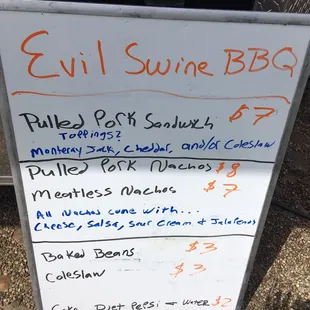 Evil Swine BBQ
Pulled Pork Sandwich $7
Toppings?
Monterey Jack, Cheddar, and/or Coleslaw
Pulled Pork Nachos $8
Meatless Nachos $7
All Nachos come with...
Cheese, Salsa, Sour Cream & Jalapenos
Baked Beans $3
Coleslaw $3
Coke Diet Pepsi + Water $2